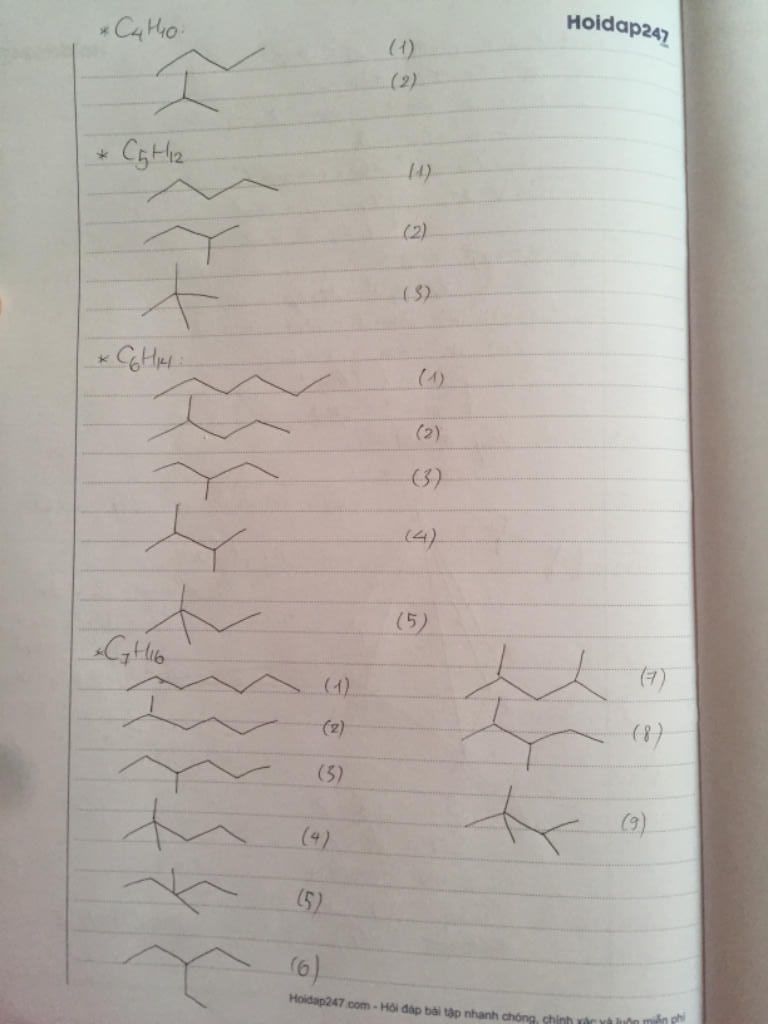 Hoidap247
* C4H10:
(1)
(2)
* C5H12
(1)
(2)
(3)
* C6H14:
(1)
(2)
(3)
(4)
(5)
* C7H16
(1)
(2)
(3)
(4)
(5)
(6)
(7)
(8)
(9)
Hoidap247.com - Hỏi đáp bài tập nhanh chóng, chính xác và luôn miễn phí